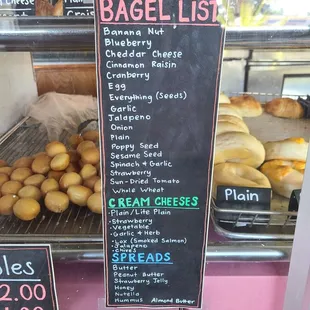 BAGEL LIST
Banana Nut
Blueberry
Cheddar Cheese
Cinnamon Raisin
Cranberry
Egg
Everything (Seeds)
Garlic
Jalapeno
Onion
Plain
Poppy Seed
Sesame Seed
Spinach & Garlic
Strawberry
Sun-Dried Tomato
Whole Wheat
CREAM CHEESES
-Plain/Lite Plain
-Strawberry
-Vegetable
-Garlic & Herb
-Lox (Smoked Salmon)
-Jalapeno
-Chives
SPREADS
Butter
Peanut Butter
Strawberry Jelly
Honey
Nutella
Hummus Almond Butter
Plain
oles
2.00